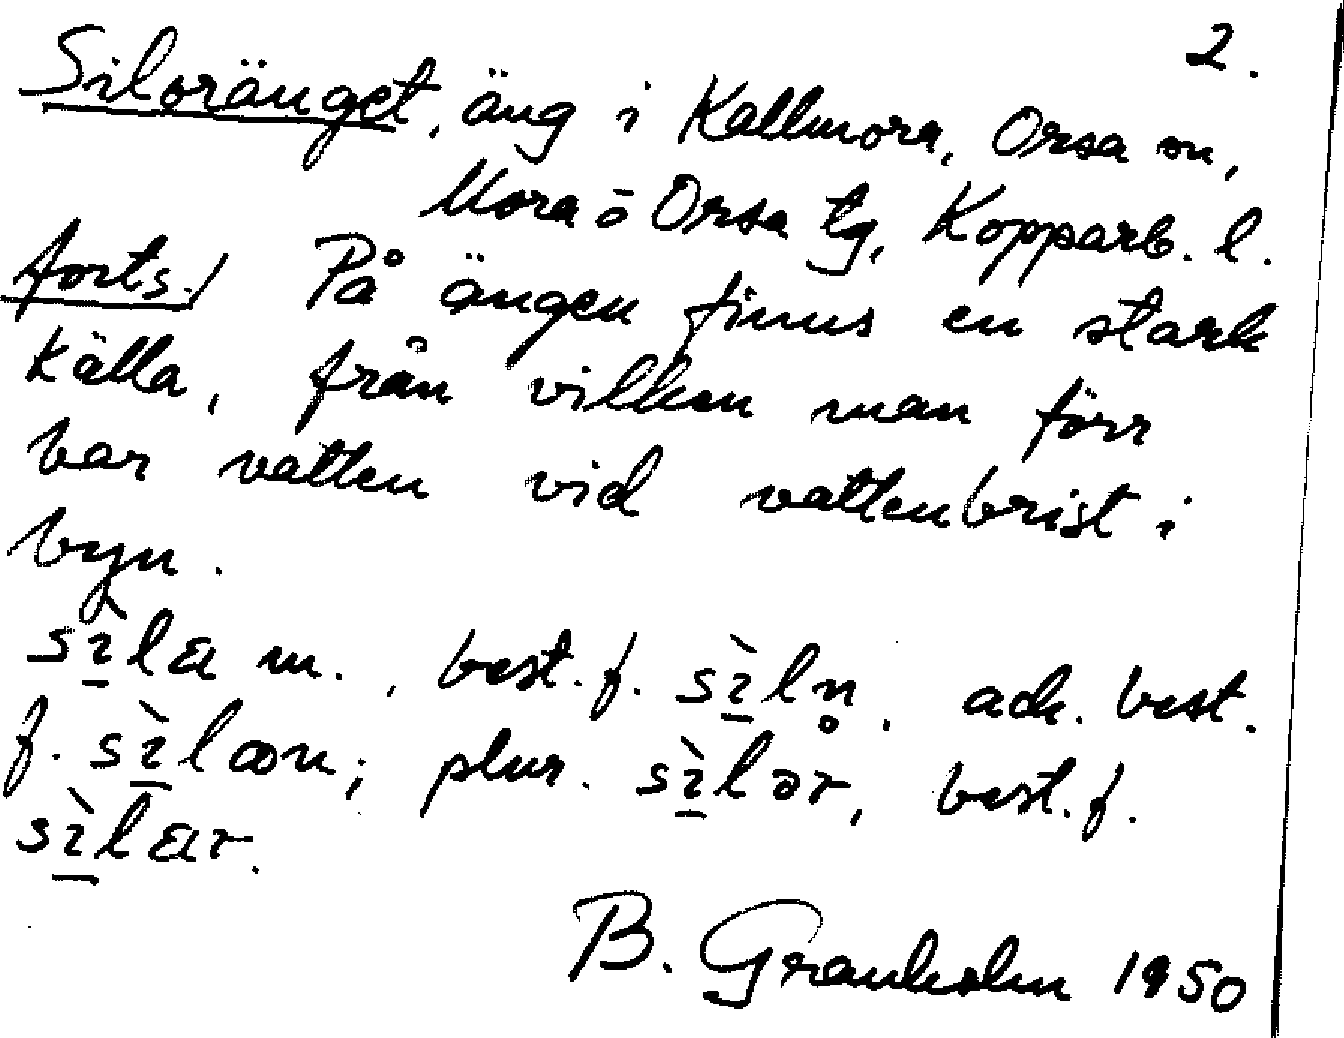 2.
Siloränget, äng i Kallmora, Orsa sn,
Mora o Orsa tg, Kopparb. l.
forts./ På ängen finns en stark
källa, från vilken man förr
bar vatten vid vattenbrist i
byn.
sìla m., best. f. sìln̥, ack. best.
f. sìlan; plur. sìlər, best. f.
sìlar.
B. Granholm 1950